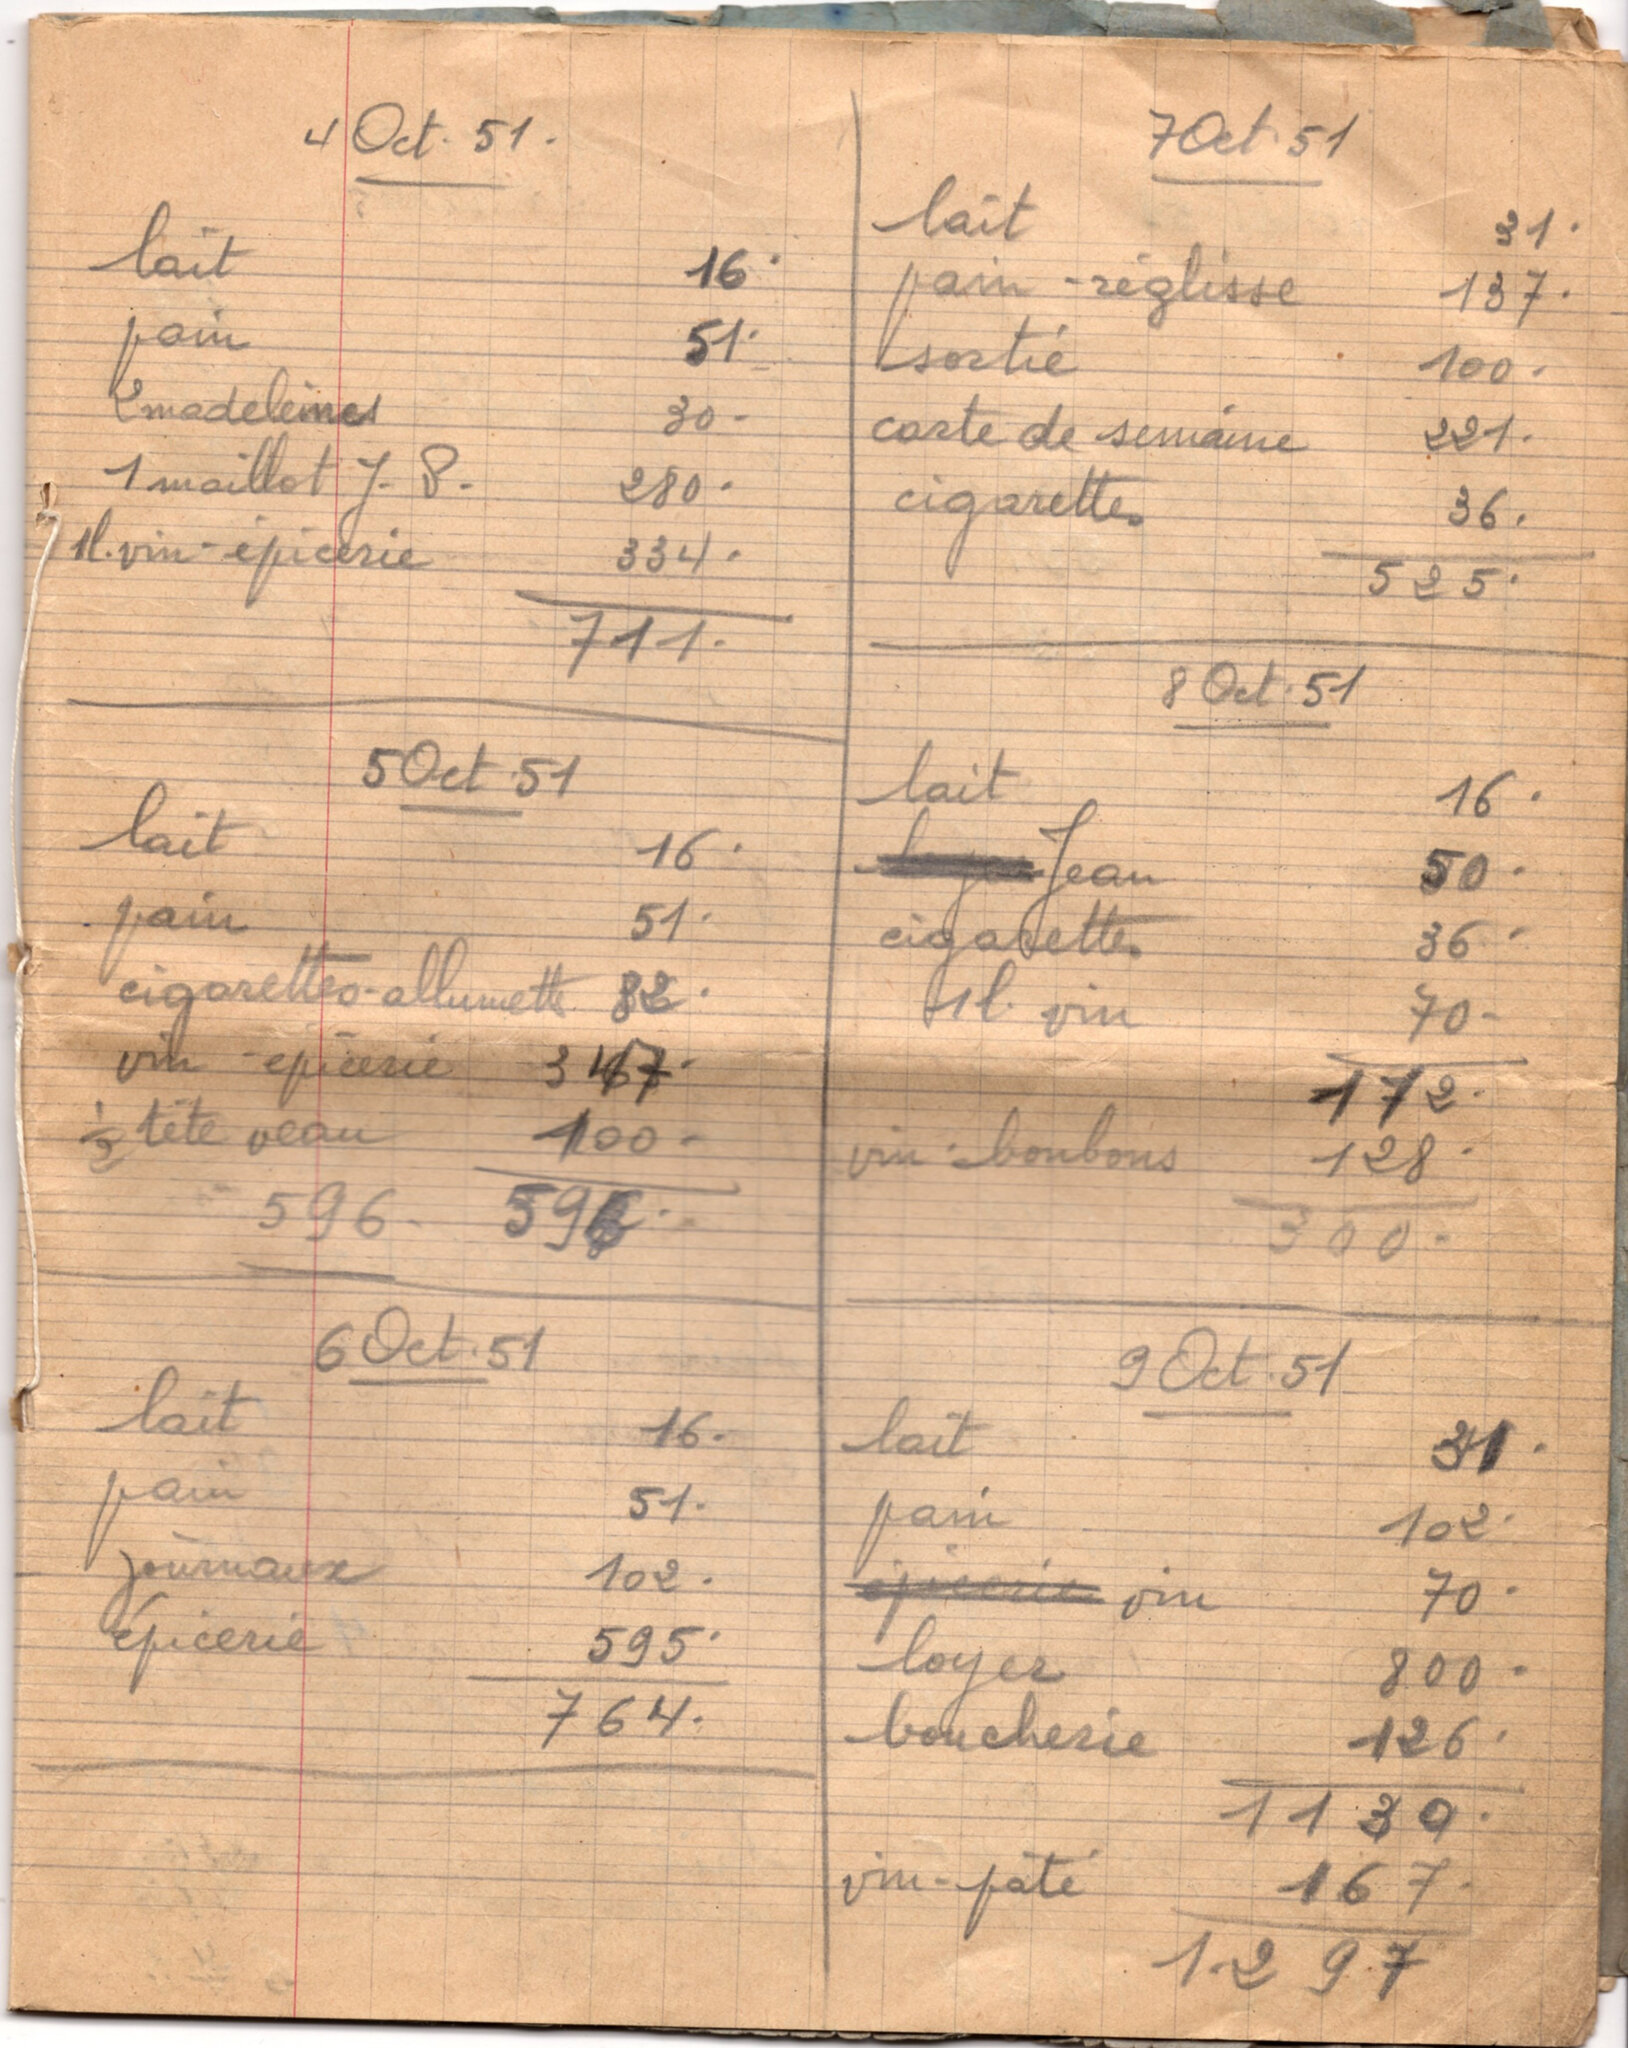 4 Oct. 51.
lait 16.
pain 51.
2 madeleines 30.
1 maillot J. P. 280.
1l. vin - épicerie 334.
711.
5 Oct. 51
lait 16.
pain 51.
cigarettes-allumettes 82.
vin - épicerie 347.
1/2 tête veau 100.
596. 596.
6 Oct. 51
lait 16.
pain 51.
journaux 102.
épicerie 595.
764.
7 Oct. 51
lait 31.
pain - réglisse 137.
sortie 100.
carte de semaine 221.
cigarettes 36.
525.
8 Oct. 51
lait 16.
Jean 50.
cigarettes 36.
1l. vin 70.
172.
vin - bonbons 128.
300.
9 Oct. 51
lait 31.
pain 102.
épicerie vin 70.
loyer 800.
boucherie 126.
1130.
vin - pâté 167.
1.297